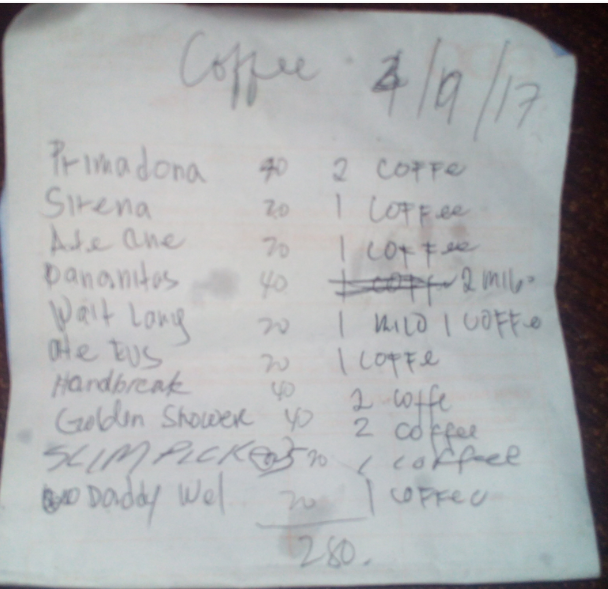 Coffee 4/9/17
Primadona 40 2 COFFe
Sirena 20 1 COFFee
Ate One 20 1 COFFee
Dananitos 40 2 milo
Wait Long 20 1 milo 1 COFFe
Ate Eus 20 1 COFFe
Handbreak 40 2 coffe
Golden Shower 40 2 coffee
SLIM 20 1 coffeel
Daddy Wel 20 1 COFFee
280.